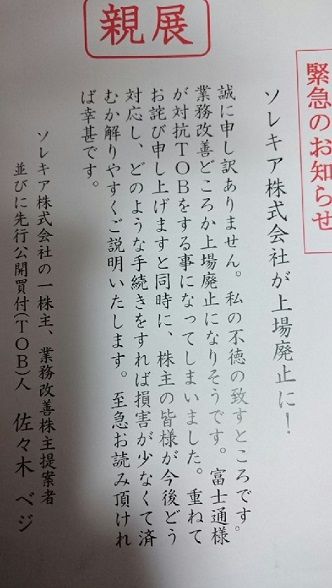 親展
緊急のお知らせ
ソレキア株式会社が上場廃止に！
誠に申し訳ありません。私の不徳の致すところです。
業務改善どころか上場廃止になりそうです。富士通様
が対抗ＴＯＢをする事になってしまいました。重ねて
お詫び申し上げますと同時に、株主の皆様が今後どう
対応し、どのような手続きをすれば損害が少なくて済
むか解りやすくご説明いたします。至急お読み頂けれ
ば幸甚です。
ソレキア株式会社の一株主、業務改善株主提案者
並びに先行公開買付(ＴＯＢ)人　佐々木 ベジ